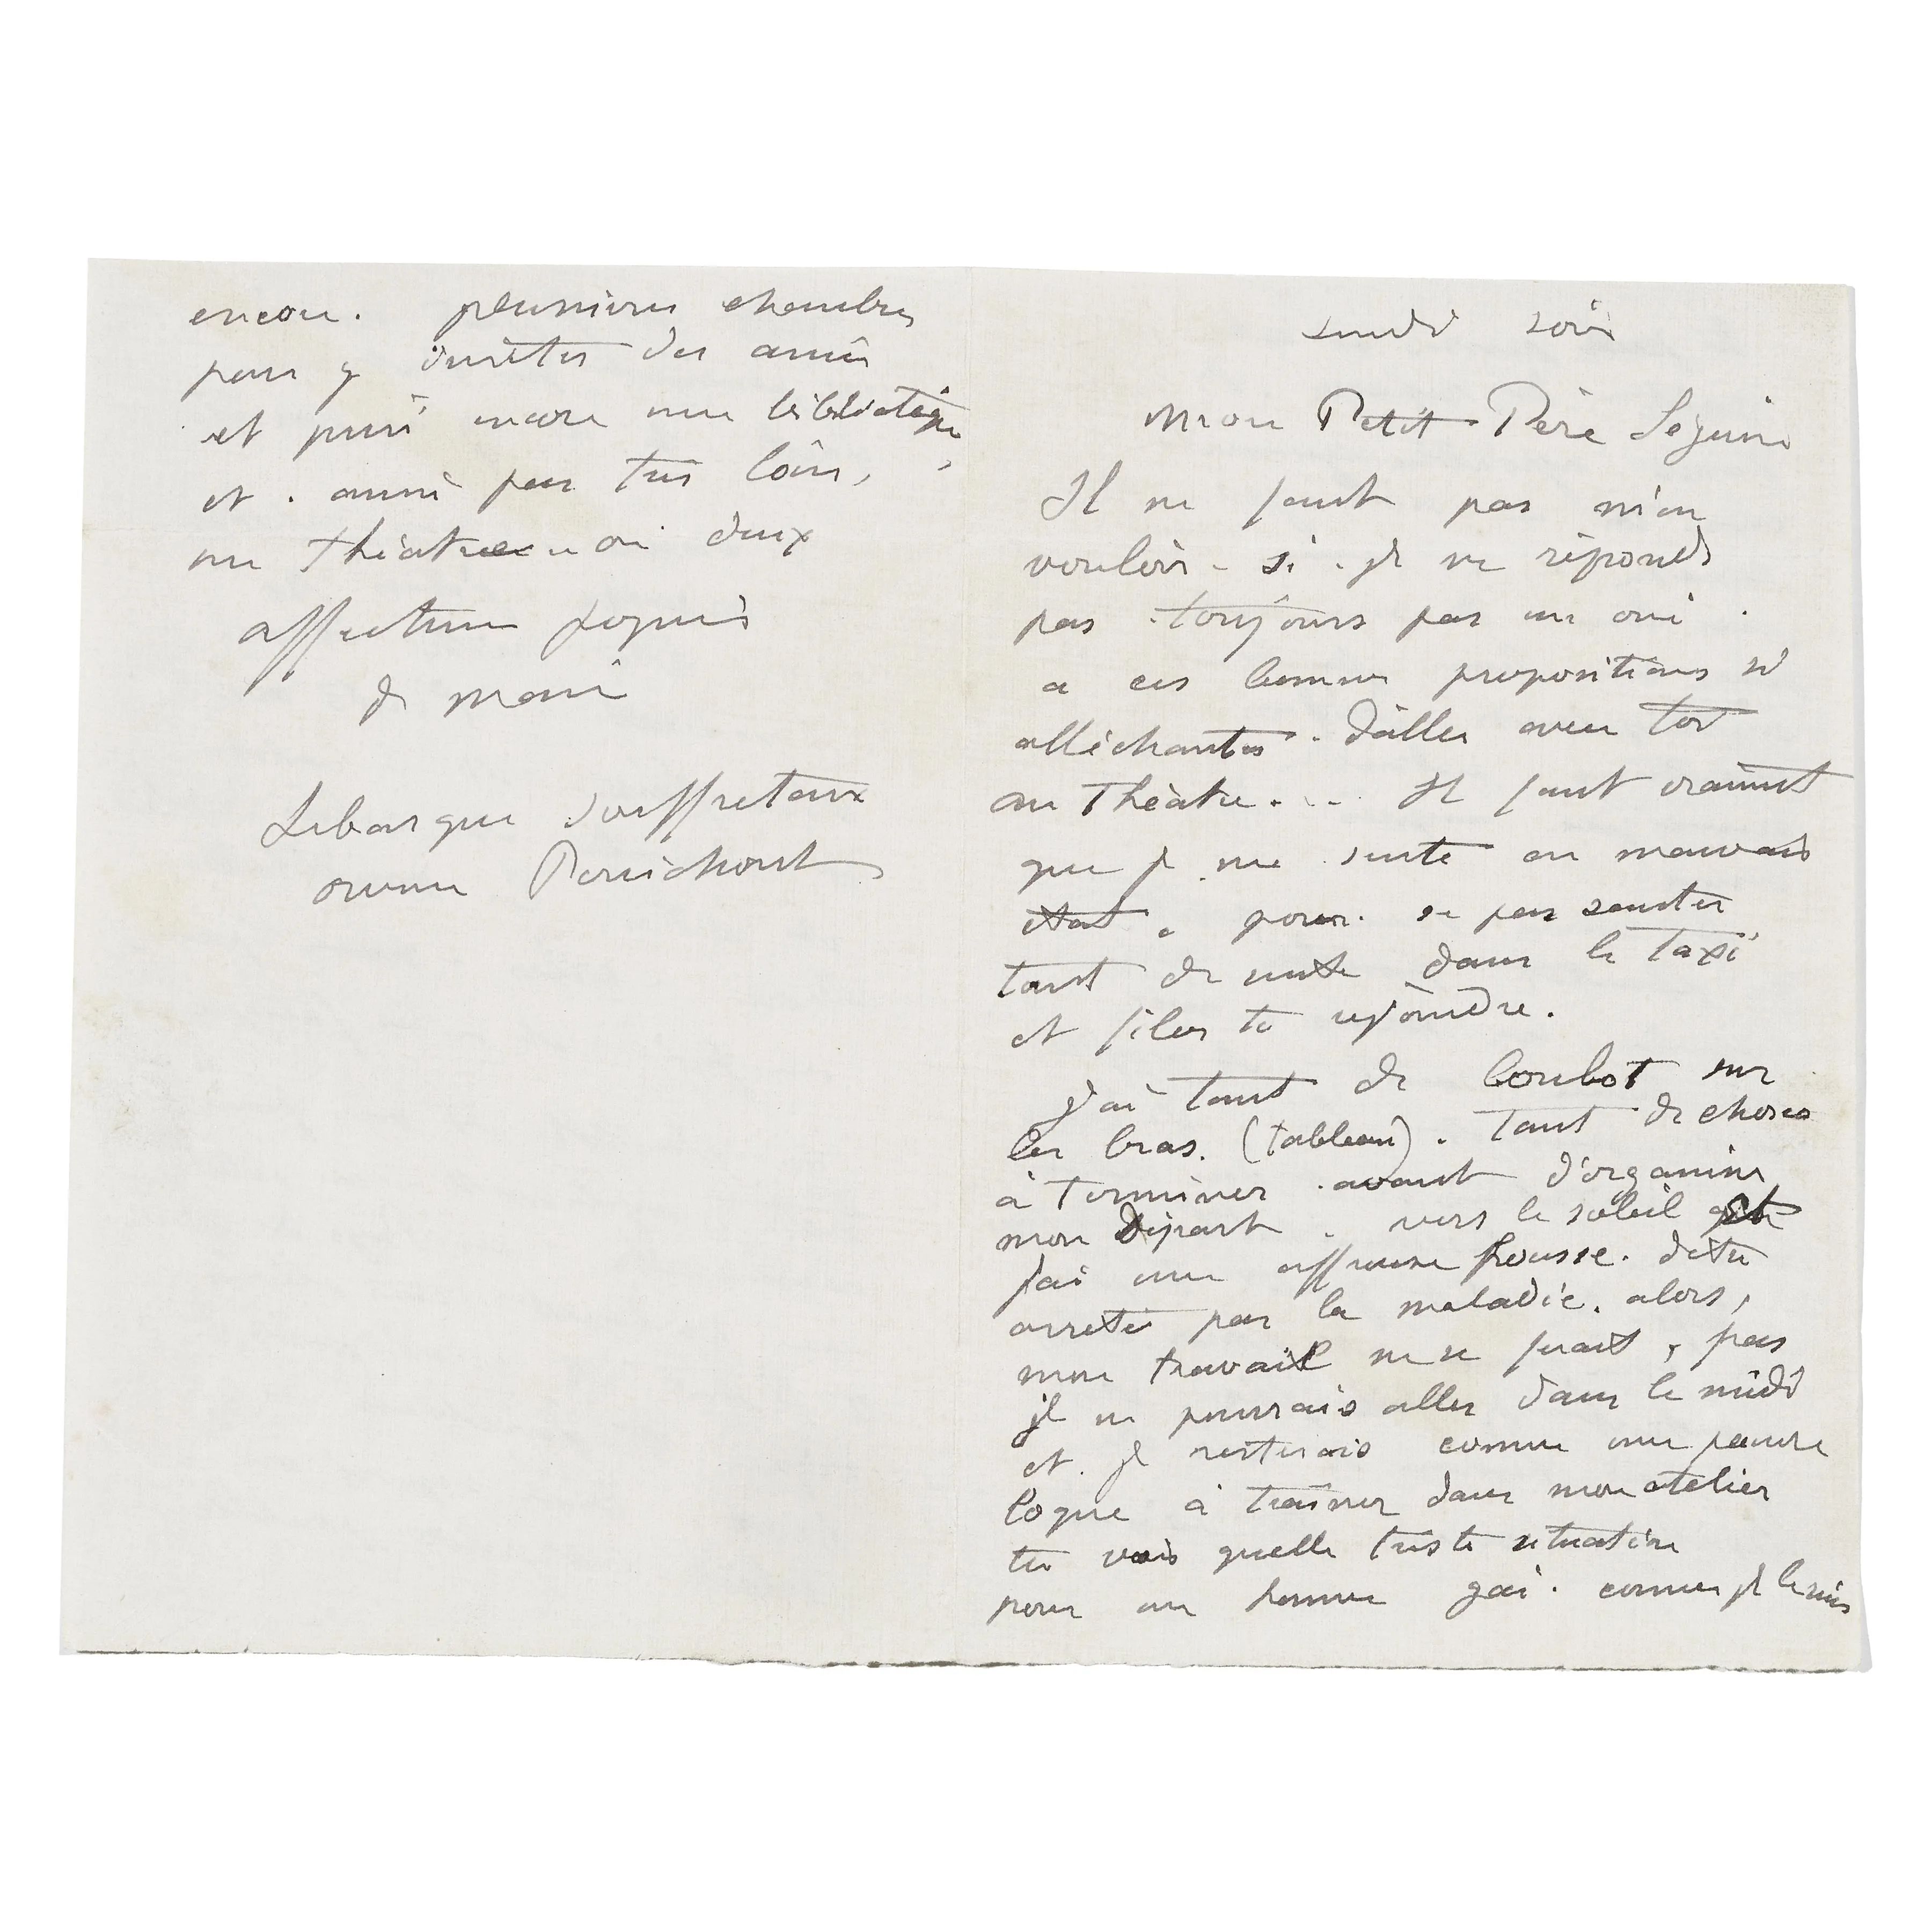 Lundi soir
Mon Petit Père Séguin
Il ne faut pas m'en
vouloir - si je ne réponds
pas toujours par un oui
a ces bonnes propositions si
alléchantes. d'aller avec toi
au Théâtre... Il faut vraiment
que je me sente en mauvais
état. pour ne pas sauter
tout de suite dans le taxi
et filer te rejoindre.
J'ai tant de boulot sur
les bras. (tableau). Tant de choses
à terminer avant d'organiser
mon Départ. vers le soleil
j'ai une affreuse frousse. d'etre
arreté par la maladie. alors,
mon travail ne se ferait, pas
je ne pourrais aller dans le midi
et je resterais comme une pauvre
loque à trainer dans mon atelier
tu vois quelle triste situation
pour un homme gai. comme je le suis
encore. plusieurs chambres
pour y inviter des amis
et puis encore une bibliotèque,
et. aussi pas très loin,
un théatre ou deux
affectueuse poignée
de main
Lebasque souffreteux